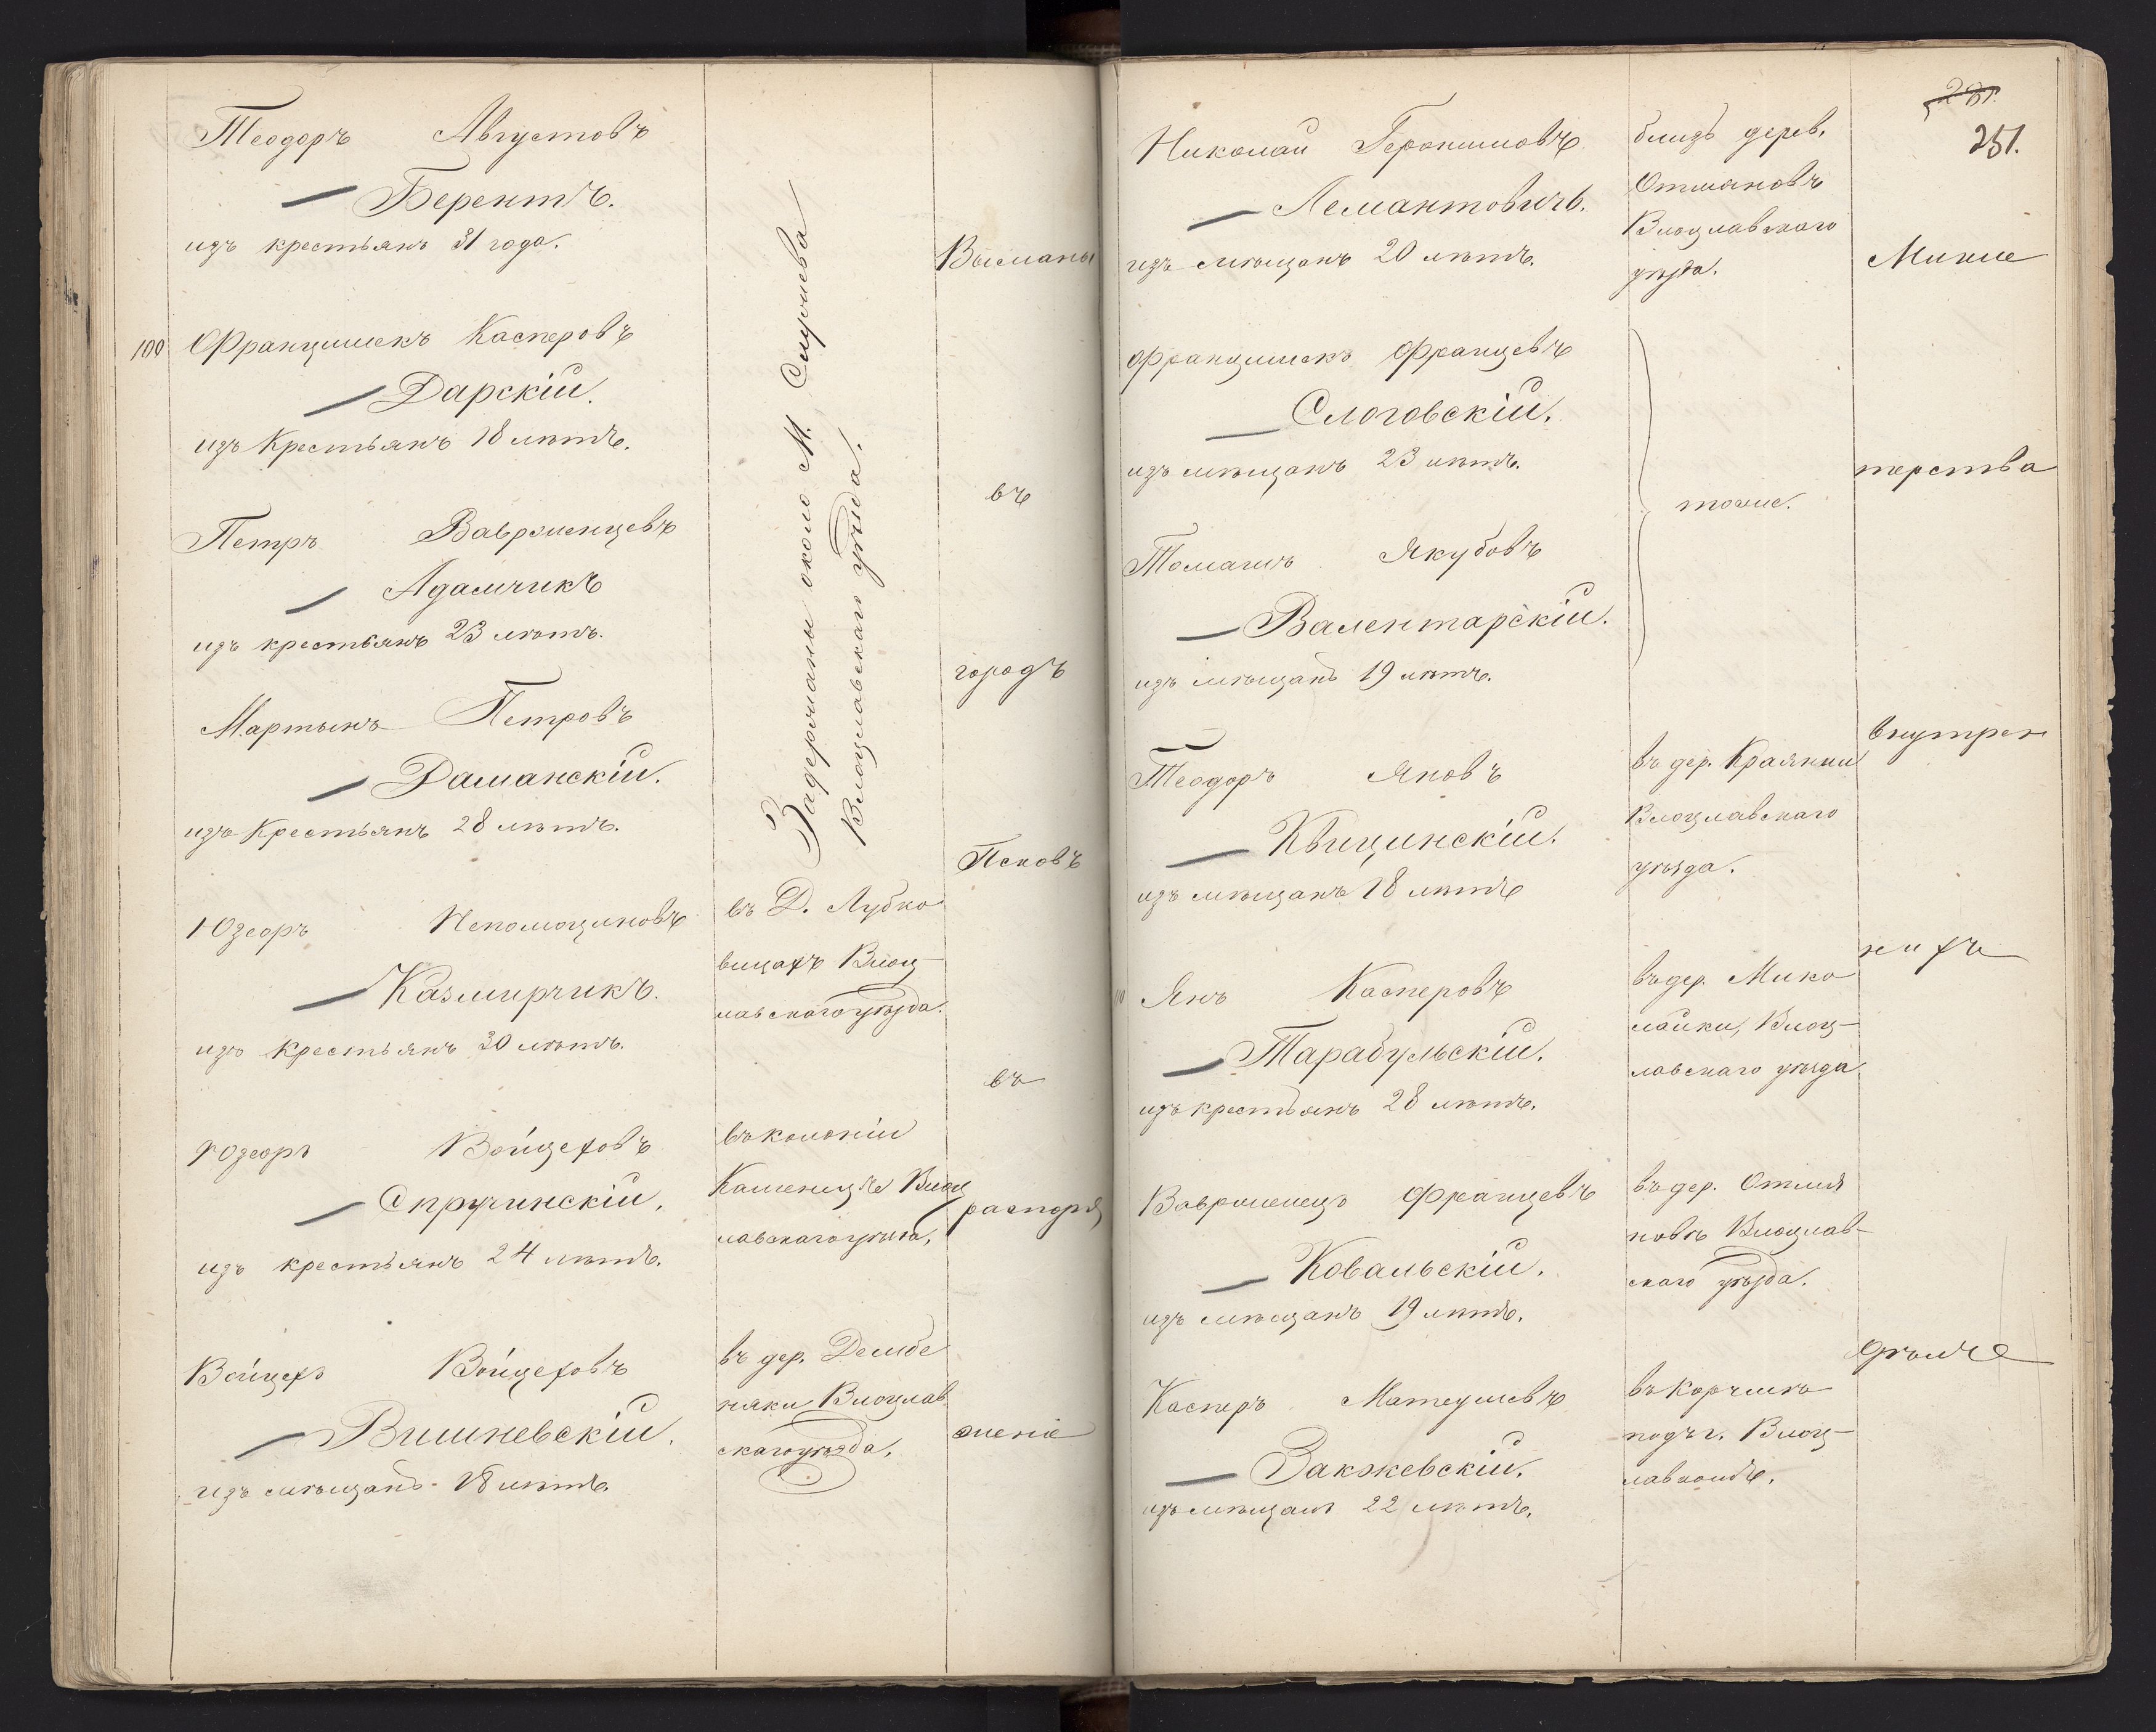 Теодоръ Августовъ
Берентъ.
изъ крестьянъ 31 года.
100 Францишекъ Касперовъ
Дарскій.
изъ Крестьянъ 18 лѣтъ.
Петръ Вавржинцевъ
Адамчикъ
изъ крестьянъ 23 лѣтъ.
Мартынъ Петровъ
Даманскій.
изъ Крестьянъ 28 лѣтъ.
Юзефъ Непомоциновъ
Казмирчикъ.
изъ крестьянъ 30 лѣтъ.
Юзефъ Войцеховъ
Спручинскій.
изъ крестьянъ 24 лѣтъ.
Войцехъ Войцеховъ
Вишневскій.
изъ мѣщанъ 18 лѣтъ.
Задержаны около М.
Влоцлавскаго уѣзда.
въ Д. Лубко
вицахъ Влоц-
лавскаго уѣзда.
въ колоніи
Каменицѣ Влоц
лавскаго уѣзда.
въ дер. Дембе
няки Влоцлав
скаго уѣзда.
Высланы
въ
городъ
Псковъ
въ
распоря
женіе
281.
251.
Николай Геронимовъ
Лемантовичъ.
изъ мѣщанъ 20 лѣтъ.
Францишекъ Францевъ
Слоговскій.
изъ мѣщанъ 23 лѣтъ.
Томашъ Якубовъ
Валентарскій.
изъ мѣщанъ 19 лѣтъ.
Теодоръ Яновъ
Квицинскій.
изъ мѣщанъ 18 лѣтъ
110 Янъ Касперовъ
Тарабульскій.
изъ крестьянъ 28 лѣтъ.
Вавржинецъ Францевъ
Ковальскій.
изъ мѣщанъ 19 лѣтъ.
Касперъ Матеушевъ
Закжевскій.
изъ мѣщанъ 22 лѣтъ.
близъ дерев.
Отмяновъ
Влоцлавскаго
уѣзда.
тоже.
въ дер. Краянки
Влоцлавскаго
уѣзда.
въ дер. Мико
лайки, Влоц-
лавскаго уѣзда
въ дер. Отмя
новъ Влоцлав-
скаго уѣзда.
въ Корчмѣ
подъ г. Влоц-
лавкомъ.
Мини
терства
внутрен
нихъ
дѣлъ